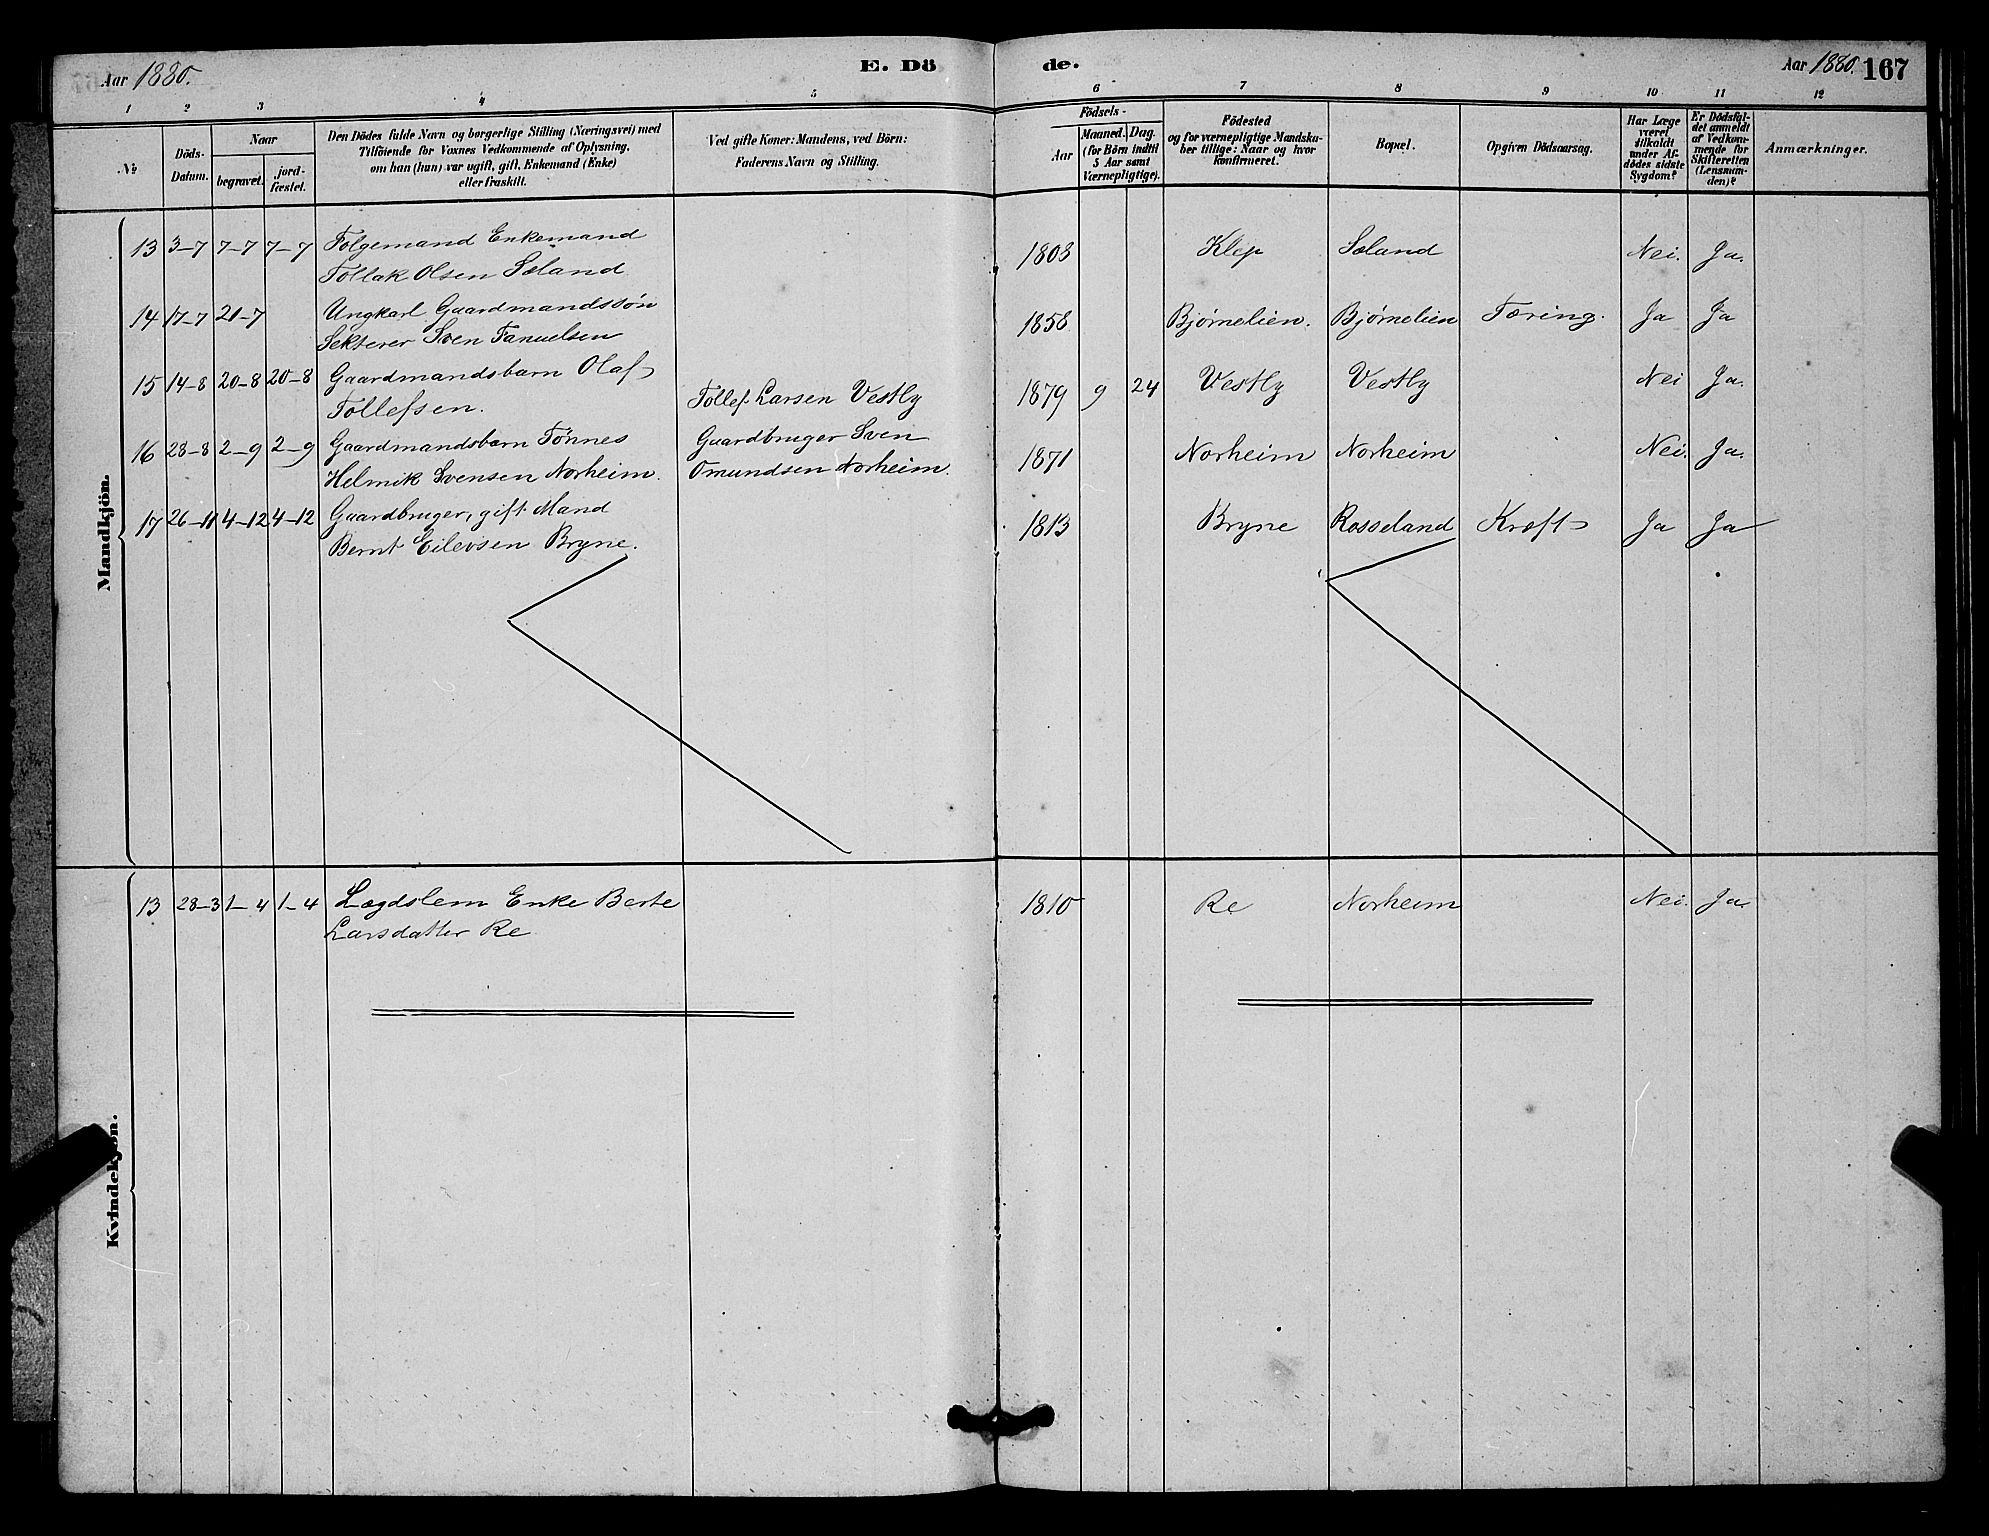 Aar 1880.
E. Dö
de.
Aar 1880. 167
1 2 3 4 5 6 7 8 9 10 11 12
No
Döds-
Datum.
Naar
begravet.
jord-
fæstet.
Den Dödes fulde Navn og borgerlige Stilling (Næringsvei) med
Tilföiende for Voxnes Vedkommende af Oplysning,
om han (hun) var ugift, gift, Enkemand (Enke)
eller fraskilt.
Ved gifte Koner: Mandens, ved Börn:
Faderens Navn og Stilling.
Födsels-
Aar
Maaned. Dag.
(for Börn indtil
5 Aar samt
Værnepligtige).
Födested
og for værnepligtige Mandska-
ber tillige: Naar og hvor
konfirmeret.
Bopæl.
Opgiven Dödsaarsag.
Har Læge
været
tilkaldt
under Af-
dödes sidste
Sygdom?
Er Dödsfal-
det anmeldt
af Vedkom-
mende for
Skifteretten
(Lensman-
den)?
Anmærkninger.
Mandkjön.
13 3-7 7-7 7-7 Folgemand Enkemand
Tollak Olsen Sæland
1803 Klep Sæland Nei. Ja.
14 17-7 21-7 Ungkarl Gaardmandssøn
Sekterer Sven Fanuelsen
1858 Bjørnelien. Bjørnelien Tæring. Ja Ja
15 14-8 20-8 20-8 Gaardmandsbarn Olaf
Tollefsen. Tollef Larsen Vestly
1879 9 24 Vestly Vestly Nei Ja.
16 28-8 2-9 2-9 Gaardmandsbarn Tønnes Gaardbruger Sven
Helmik Svensen Norheim. Omundsen Norheim.
1871 Norheim Norheim Nei. Ja.
17 26-11 4-12 4-12 Gaardbruger, gift Mand
Bernt Eilevsen Bryne.
1813 Bryne Rosseland Kræft Ja Ja
Kvindekjön.
13 28-3 1-4 1-4 Lægdslem Enke Berte
Larsdatter Re
1810 Re Norheim Nei. Ja.